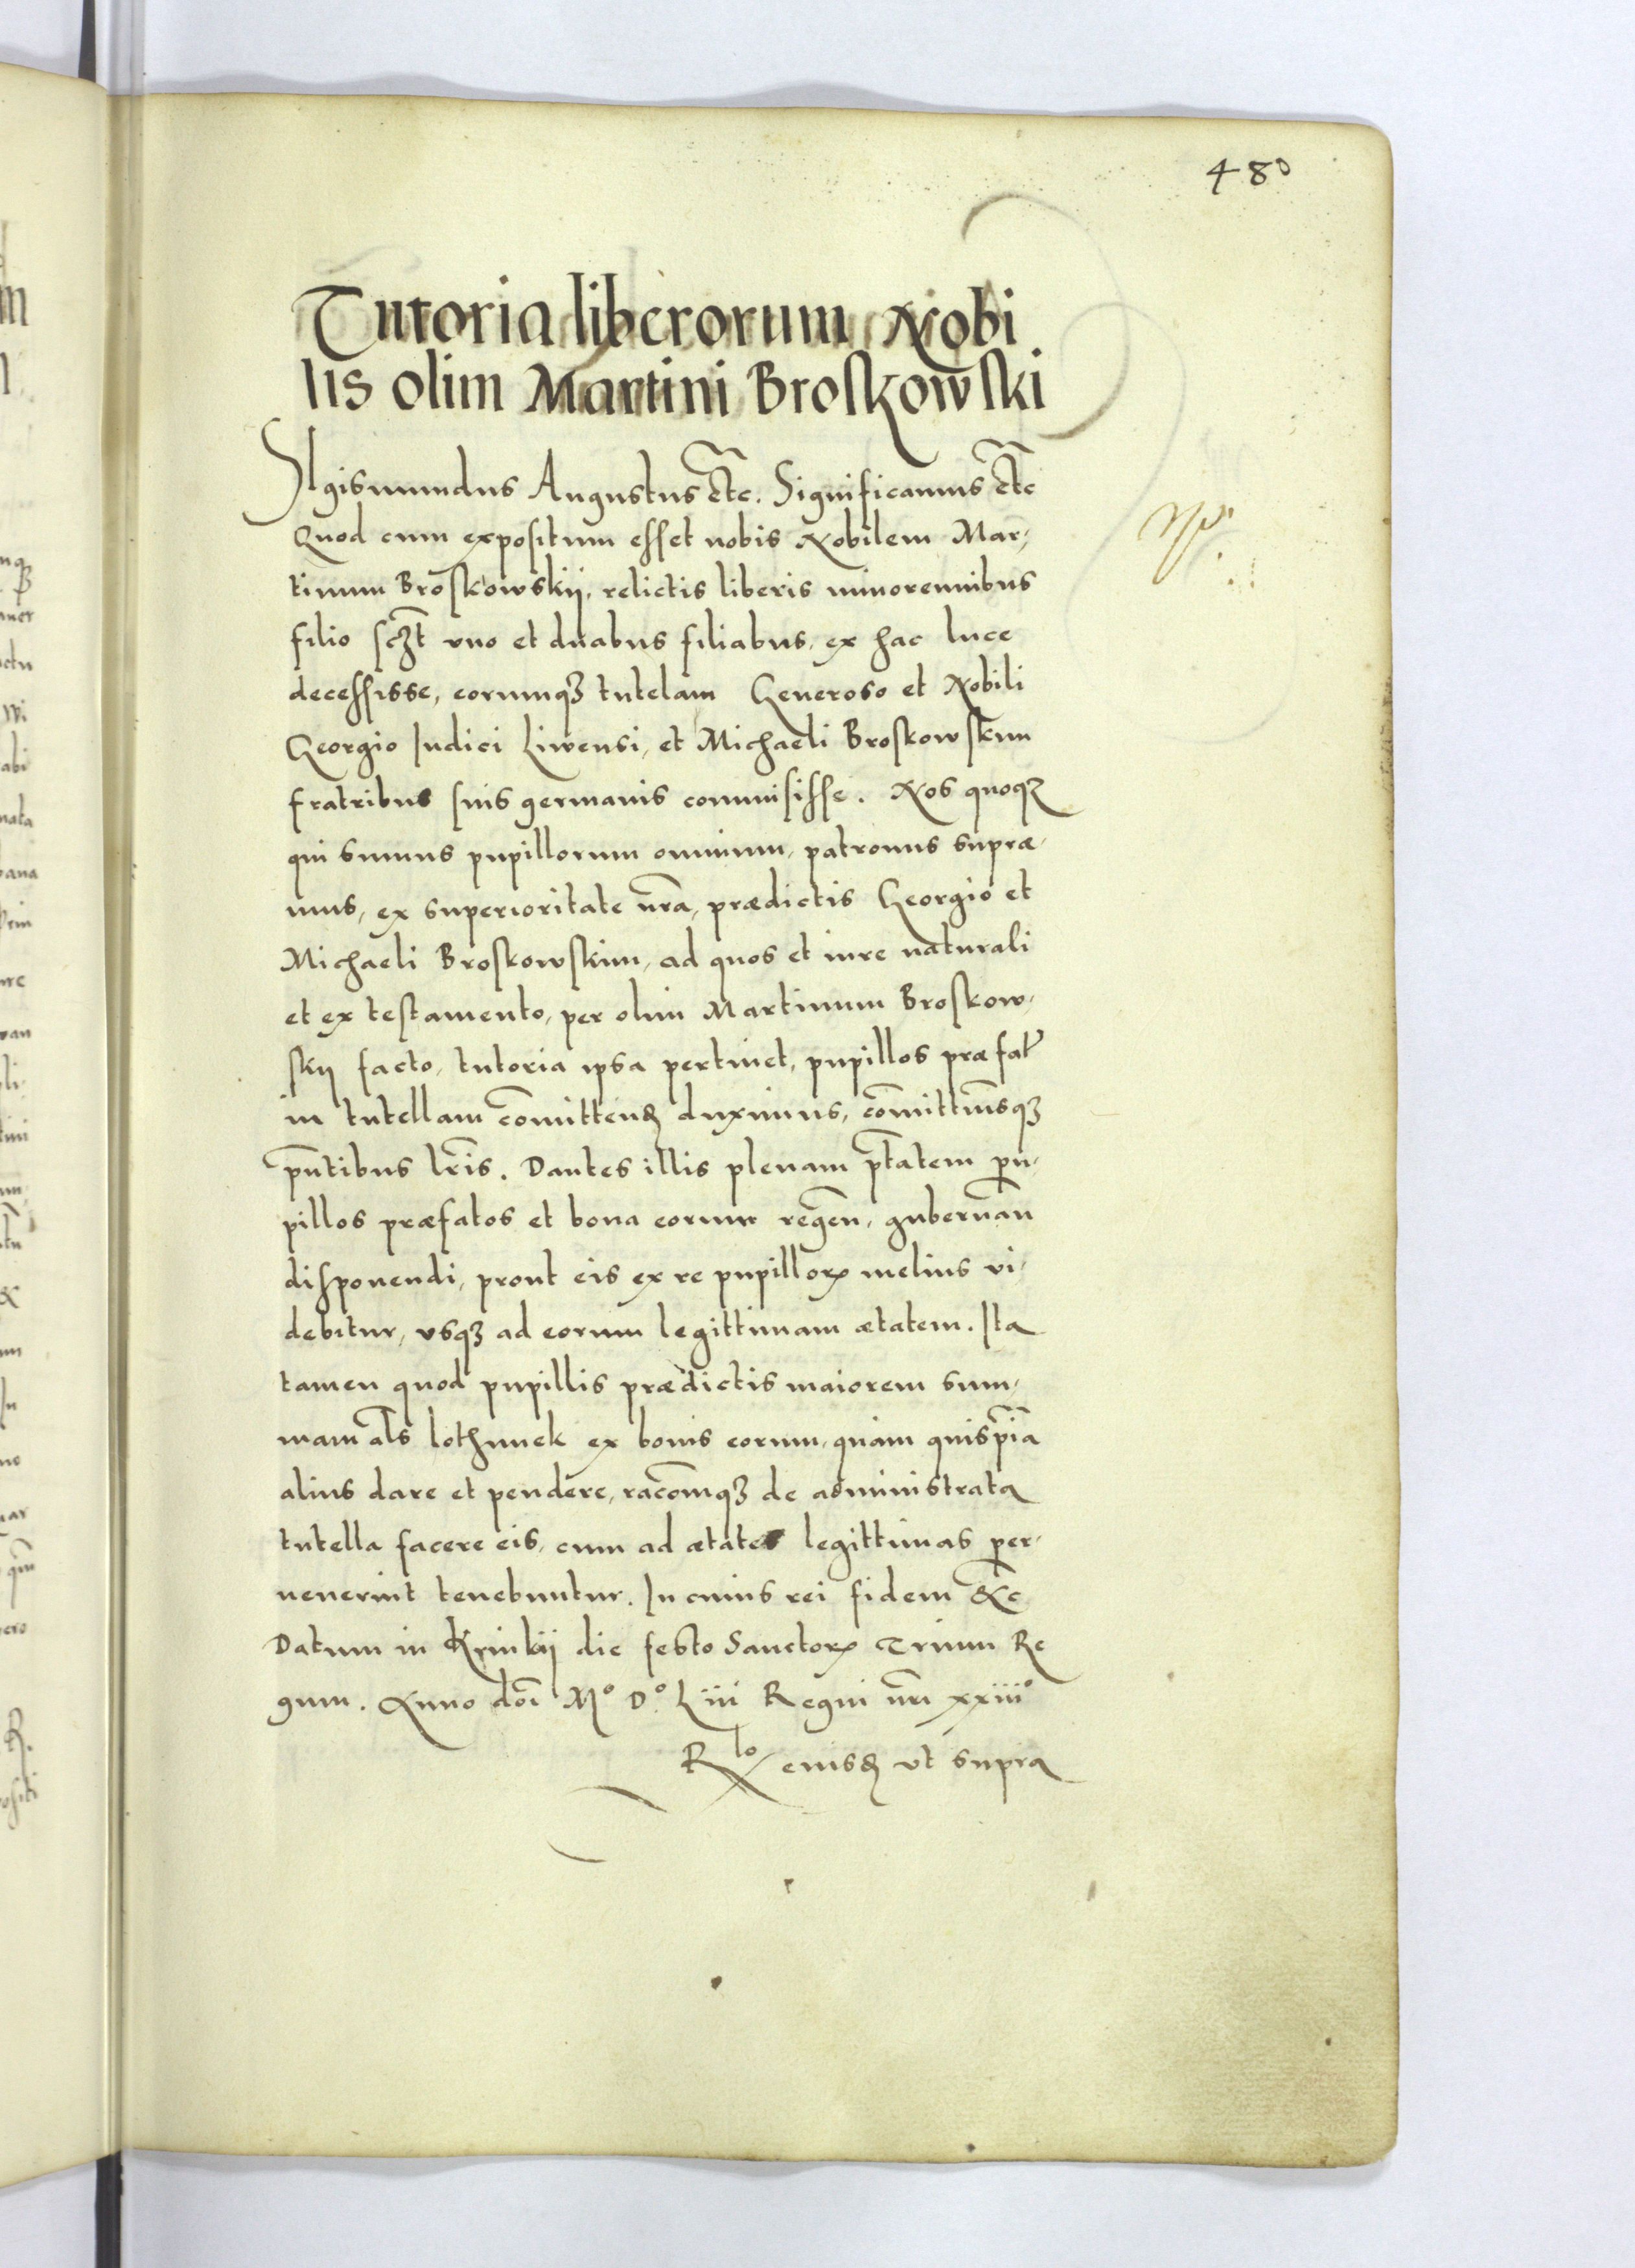 480
Tutoria liberorum Nobi
lis olim Martini Broskowski
Sigismundus Augustus etc. Significamus etc
Quod cum expositum esset nobis Nobilem Mar,
tinum Broskowskij, relictis liberis minorennibus
filio sczt vno et duabus filiabus, ex hac luce
decessisse, eorumqꝫ tutelam Generoso et Nobili
Georgio Iudici Liwensi, et Michaeli Broskowskim
fratribus suis germanis commisisse. Nos quoqꝫ
qui sumus pupillorum omnium, patronus supræ,
mus, ex superioritate nr̄a, prædictis Georgio et
Michaeli Broskowskim, ad quos et iure naturali
et ex testamento, per olim Martinum Broskow,
skij facto, tutoria ipsa pertinet, pupillos præfat̄
in tutellam com̄ittenꝝ duximus, com̄ittim̄sqꝫ
pn̄tibus lr̄is. Dantes illis plenam pt̄atem pu,
pillos præfatos et bona eorum regen̄, gubernan̄
disponendi, prout eis ex re pupilloꝝ melius vi,
debitur, vsqꝫ ad eorum legittimam ætatem. Ita
tamen quod pupillis prædictis maiorem sum,
mam als̄ lothunek ex bonis eorum, quam quispia̅
alius dare et pendere, rac̄omqꝫ de administrata
tutella facere eis, cum ad ætates legittimas per,
uenerint tenebuntur. In cuius rei fidem &c
Datum in Krinkij die festo Sanctoꝝ Trium Re
gum. Anno dn̄i Mº Dº. Liiii Regni nr̄i xxiiiiº
R͞lo eiusꝝ vt supra